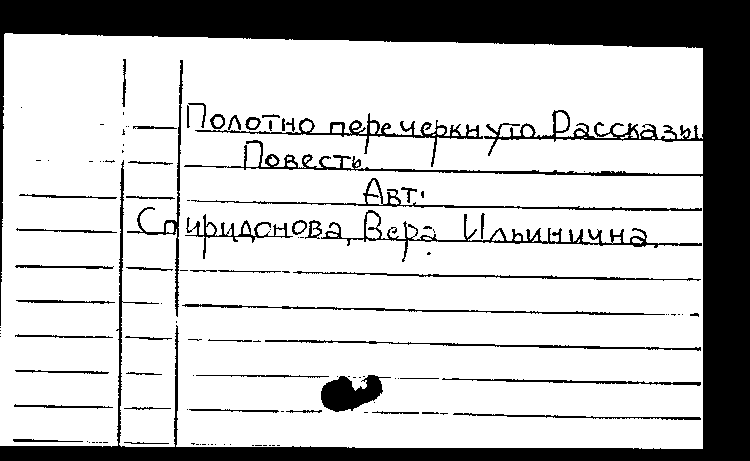 Полотно перечеркнуто. Рассказы.
Повесть.
Авт.:
Спиридонова, Вера Ильинична.